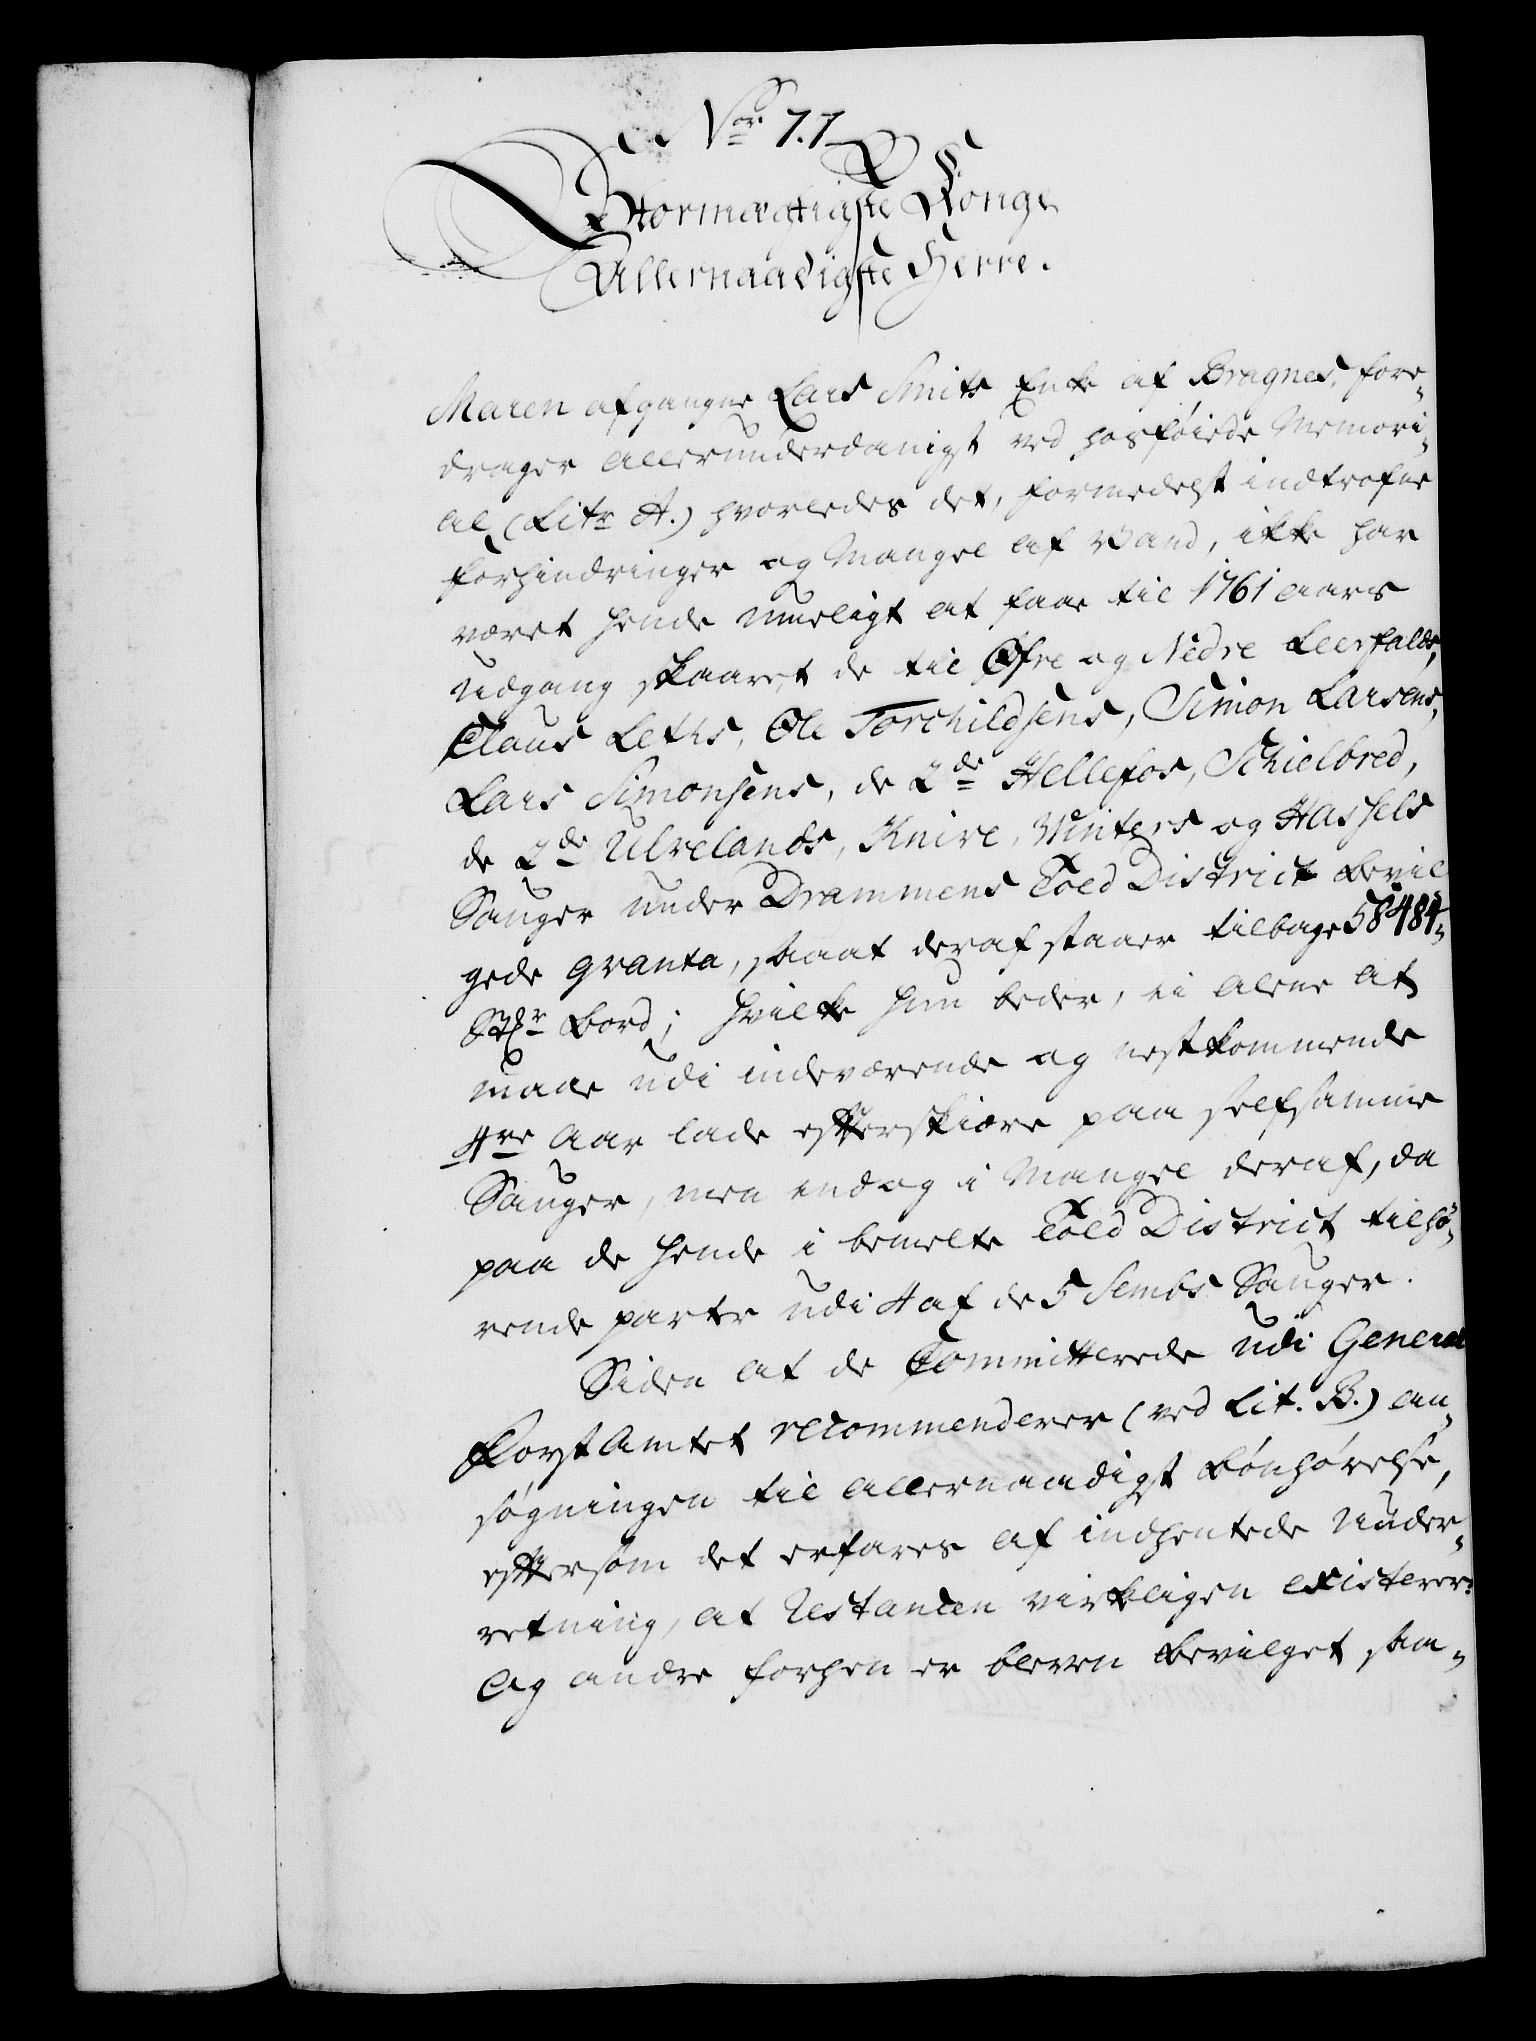 Nor. 77
Stormægtigste Konge
Allernaadigste Herre.
Maren afgangne Lars Smits Enke af Bragnes, fore-
drager allerunderdanigst ved hosføiede Memori-
al (Litr A.) hvorledes det, formedelst indtrofne
forhindringer og Mangel af Vand, ikke har
været hende mueligt at faae til 1761 aars
udgang skaaret de til Øfre og Nedre Leerfalds,
Claus Leths, Ole Torchildsens, Simon Larsens,
Lars Simonsens, de 2de Hellefos, Schielbred,
de 2de Ulvelands, Knive, Winters og Hassels
Sauger under Drammens Told District bevil
gede qvanta, saaat deraf staaer tilbage 58484,
Stkr Bord; hvilke hun beder, ei alene at
maae udi indeværende og nestkommende
4re Aar lade efterskiære paa selfsamme
Sauger, men endog i Mangel deraf, da
paa de hende i bemelte Told District tilhø-
rende parter udi 4 af de 5 Sembs Sauger.
Siden at de Committerede udi General
Forst Amtet recommenderer (ved Lit. B.) an-
søgningen til allernaadigst Bønhørelse,
eftersom det erfares af indhentede Under-
retning, at Restancen virkeligen existerer:
Og andre forhen er bleven bevilget saa-